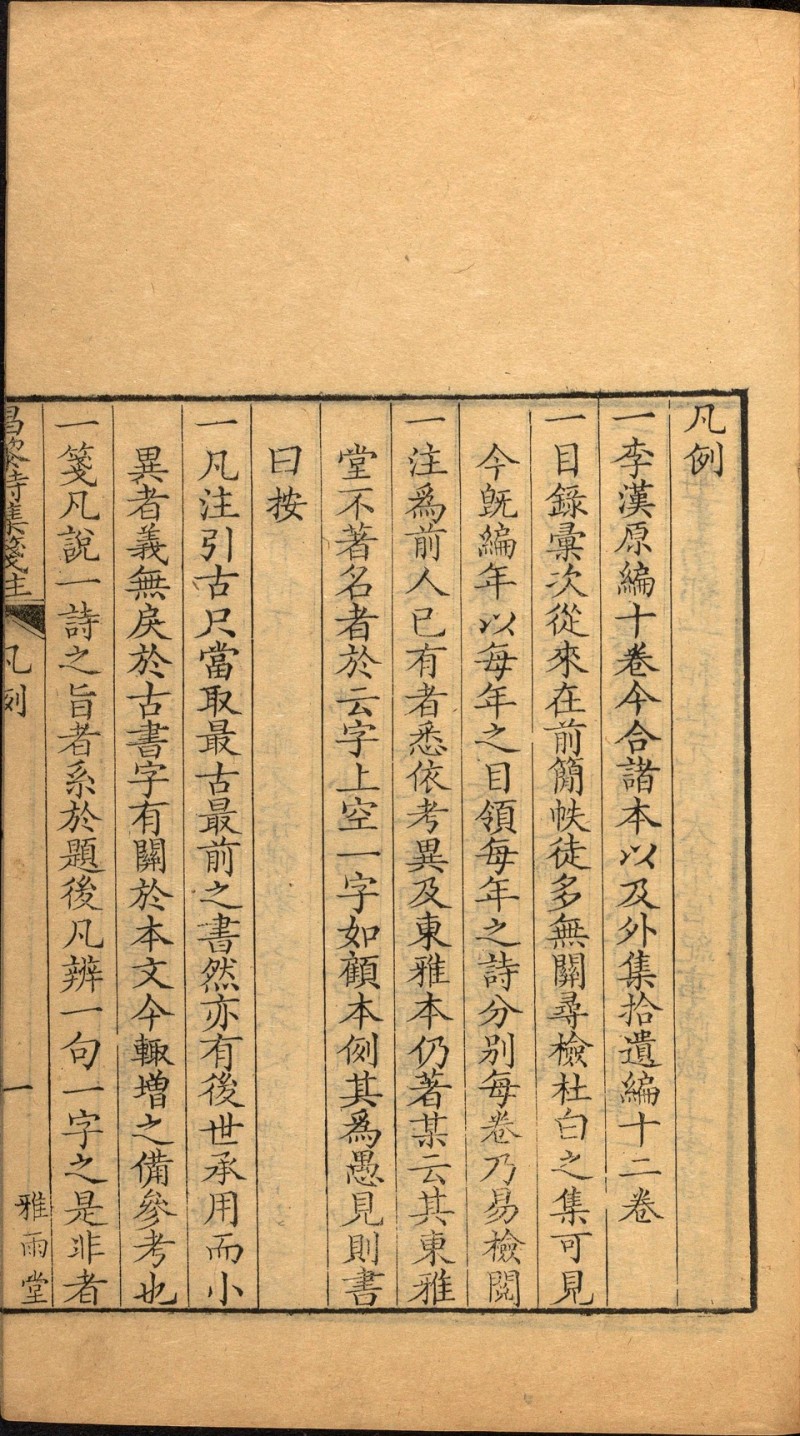 凡例
一李漢原編十卷今合諸本以及外集拾遺編十二卷
一目錄彙次從來在前簡帙徒多無關尋檢杜白之集可見
今旣編年以每年之目領每年之詩分别每卷乃易檢閱
一注爲前人已有者悉依考異及東雅本仍著某云其東雅
堂不著名者於云字上空一字如顧本例其爲愚見則書
曰按
一凡注引古尺當取最古最前之書然亦有後世承用而小
異者義無戾於古書字有關於本文今輙增之備參考也
一箋凡說一詩之旨者系於題後凡辨一句一字之是非者
昌黎詩集箋注 凡例 一 雅雨堂